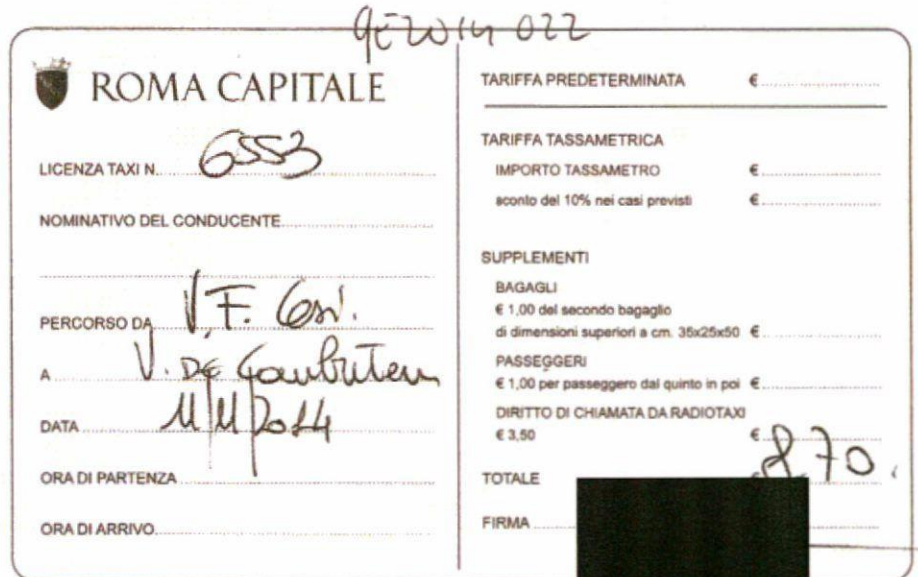 ROMA CAPITALE
LICENZA TAXI N. 6553
NOMINATIVO DEL CONDUCENTE
PERCORSO DA V. F. Cesi.
A V. De
DATA 11/11/2014
ORA DI PARTENZA
ORA DI ARRIVO
TARIFFA PREDETERMINATA €
TARIFFA TASSAMETRICA
IMPORTO TASSAMETRO €
sconto del 10% nei casi previsti €
SUPPLEMENTI
BAGAGLI
€ 1,00 del secondo bagaglio
di dimensioni superiori a cm. 35x25x50 €
PASSEGGERI
€ 1,00 per passeggero dal quinto in poi €
DIRITTO DI CHIAMATA DA RADIOTAXI
€ 3,50 €
TOTALE 8,70
FIRMA